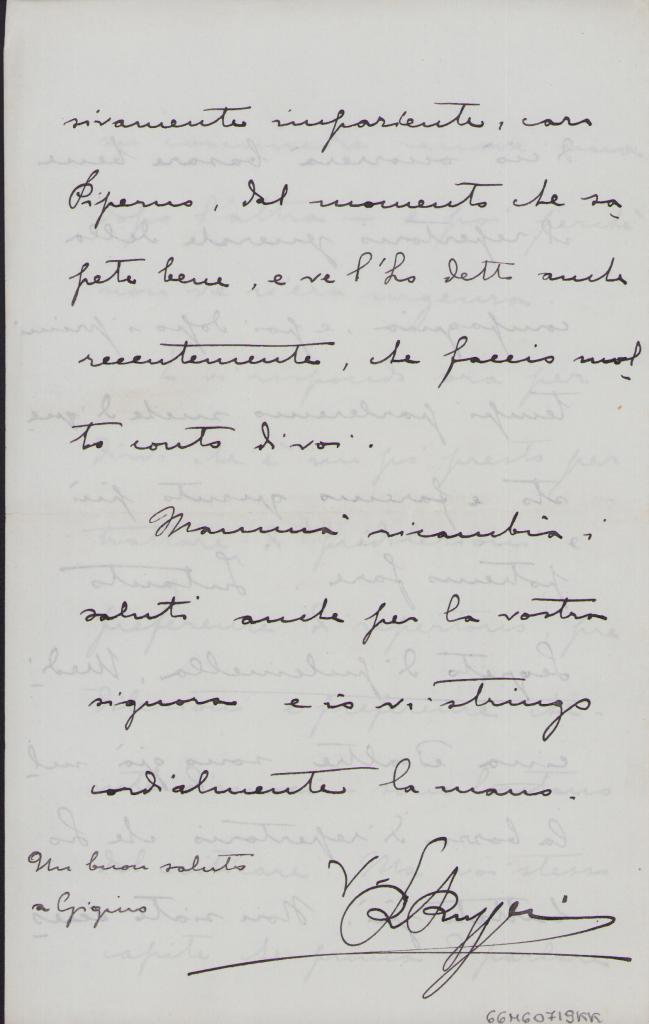 sivamente impaziente, caro
Piperno, dal momento che sa-
pete bene, e ve l'ho detto anche
recentemente, che faccio mol-
to conto di voi.
Mammà ricambia i
saluti anche per la vostra
signora e io vi stringo
cordialmente la mano.
Un buon saluto
a Gigino
V.
Ruggeri
66M60719KK